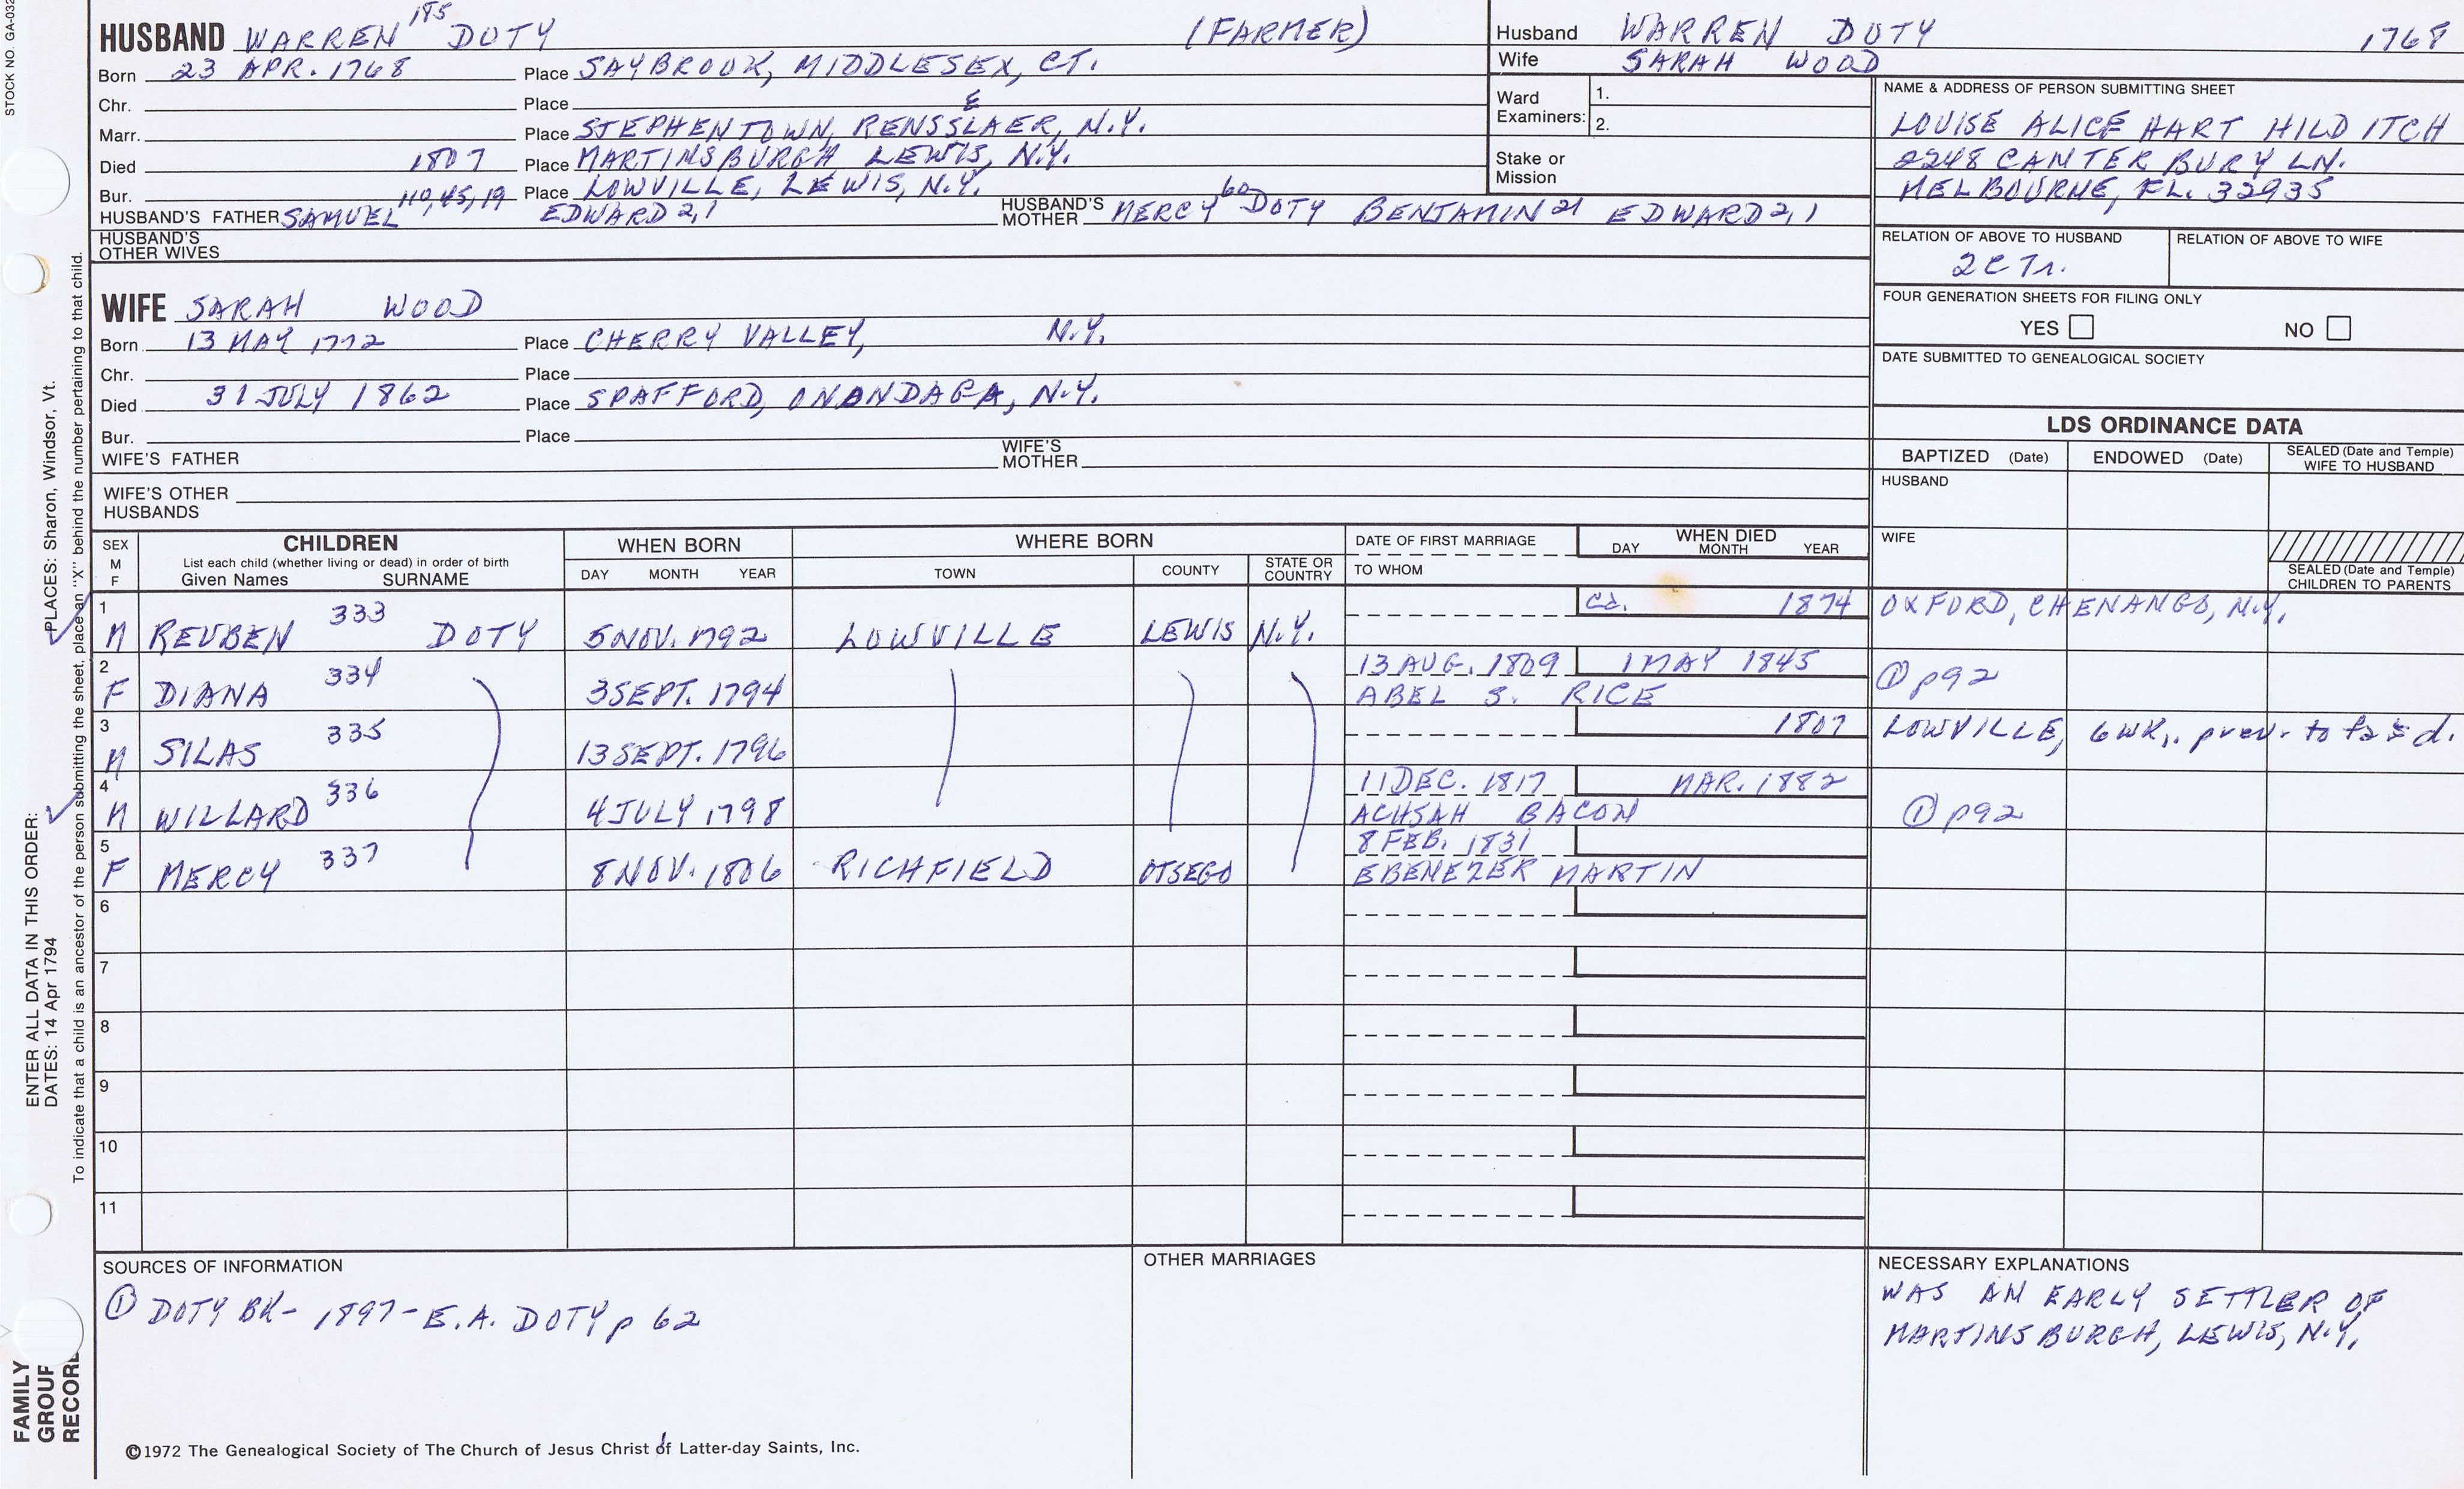 STOCK NO. GA-032
HUSBAND WARREN 185 DOTY (FARMER)
Born 23 APR. 1768 Place SAYBROOK, MIDDLESEX, CT.
Chr. Place &
Marr. Place STEPHENTOWN, RENSSLAER, N.Y.
Died 1807 Place MARTINSBURGH LEWIS, N.Y.
Bur. Place LOWVILLE, LEWIS, N.Y.
HUSBAND'S FATHER SAMUEL 110,45,19 EDWARD 2,1 HUSBAND'S MOTHER MERCY 60 DOTY BENJAMIN 21 EDWARD 2,1
HUSBAND'S OTHER WIVES
WIFE SARAH WOOD
Born 13 MAY 1772 Place CHERRY VALLEY, N.Y.
Chr. Place
Died 31 JULY 1862 Place SPAFFORD, ONANDAGA, N.Y.
Bur. Place
WIFE'S FATHER WIFE'S MOTHER
WIFE'S OTHER HUSBANDS
Husband WARREN DOTY 1768
Wife SARAH WOOD
Ward Examiners: 1.
2.
Stake or Mission
NAME & ADDRESS OF PERSON SUBMITTING SHEET
LOUISE ALICE HART HILDITCH
2248 CANTERBURY LN.
MELBOURNE, FL. 32935
RELATION OF ABOVE TO HUSBAND RELATION OF ABOVE TO WIFE
FOUR GENERATION SHEETS FOR FILING ONLY
YES NO
DATE SUBMITTED TO GENEALOGICAL SOCIETY
LDS ORDINANCE DATA
BAPTIZED (Date) ENDOWED (Date) SEALED (Date and Temple) WIFE TO HUSBAND
HUSBAND
WIFE
SEALED (Date and Temple) CHILDREN TO PARENTS
SEX M F CHILDREN WHEN BORN WHERE BORN DATE OF FIRST MARRIAGE WHEN DIED
List each child (whether living or dead) in order of birth
Given Names SURNAME DAY MONTH YEAR TOWN COUNTY STATE OR COUNTRY TO WHOM DAY MONTH YEAR
1 M REUBEN 333 DOTY 5 NOV. 1792 LOWVILLE LEWIS N.Y. Ca. 1874 OXFORD, CHENANGO, N.Y.
2 F DIANA 334 3 SEPT. 1794 13 AUG. 1809 1 MAY 1845 ① p92
ABEL S. RICE
3 M SILAS 335 13 SEPT. 1796 1807 LOWVILLE, 6 WK. prev. to
4 M WILLARD 336 4 JULY 1798 11 DEC. 1817 MAR. 1882 ① p92
ACHSAH BACON
5 F MERCY 337 8 NOV. 1806 RICHFIELD OTSEGO 8 FEB. 1831
EBENEZER MARTIN
6
7
8
9
10
11
SOURCES OF INFORMATION
① DOTY BK- 1897- E.A. DOTY p 62
OTHER MARRIAGES
NECESSARY EXPLANATIONS
WAS AN EARLY SETTLER OF
MARTINSBURGH, LEWIS, N.Y.
©1972 The Genealogical Society of The Church of Jesus Christ of Latter-day Saints, Inc.
FAMILY
GROUP
RECORD
ENTER ALL DATA IN THIS ORDER:
DATES: 14 Apr 1794 PLACES: Sharon, Windsor, Vt.
To indicate that a child is an ancestor of the person submitting the sheet, place an "X" behind the number pertaining to that child.